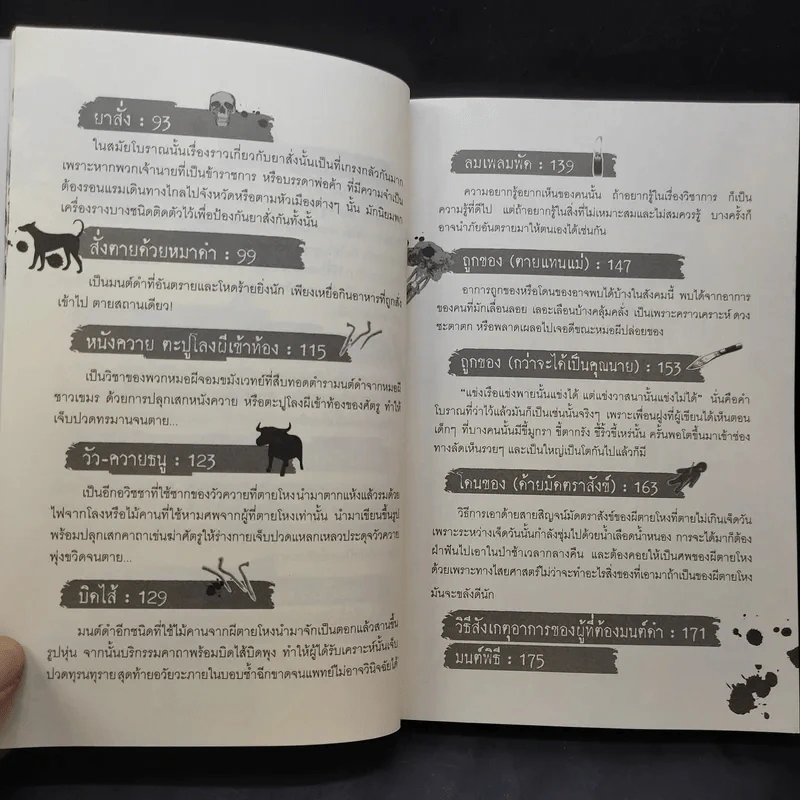 ยาสั่ง : 93
ในสมัยโบราณนั้นเรื่องราวเกี่ยวกับยาสั่งนั้นเป็นที่เกรงกลัวกันมาก
เพราะหากพวกเจ้านายที่เป็นข้าราชการ หรือบรรดาพ่อค้า ที่มีความจำเป็น
ต้องรอนแรมเดินทางไกลไปจังหวัดหรือตามหัวเมืองต่างๆ นั้น มักนิยมพก
เครื่องรางบางชนิดติดตัวไว้เพื่อป้องกันยาสั่งกันทั้งนั้น
สั่งตายด้วยหมาดำ : 99
เป็นมนต์ดำที่อันตรายและโหดร้ายยิ่งนัก เพียงเหยื่อกินอาหารที่ถูกสั่ง
เข้าไป ตายสถานเดียว!
หนังควาย ตะปูโลงผีเข้าท้อง : 115
เป็นวิชาของพวกหมอผีจอมขมังเวทย์ที่สืบทอดตำรามนต์ดำจากหมอผี
ชาวเขมร ด้วยการปลุกเสกหนังควาย หรือตะปูโลงผีเข้าท้องของศัตรู ทำให้
เจ็บปวดทรมานจนตาย...
วัว-ควายธนู : 123
เป็นอีกอวิชชาที่ใช้ซากของวัวควายที่ตายโหงนำมาตากแห้งแล้วรมด้วย
ไฟจากโลงหรือไม้คานที่ใช้หามศพจากผู้ที่ตายโหงเท่านั้น นำมาเขียนขึ้นรูป
พร้อมปลุกเสกคาถาเช่นฆ่าศัตรูให้ร่างกายเจ็บปวดแหลกเหลวประดุจวัวควาย
พุ่งขวิดจนตาย...
บิดไส้ : 129
มนต์ดำอีกชนิดที่ใช้ไม้คานจากผีตายโหงนำมาจักเป็นตอกแล้วสานขึ้น
รูปหุ่น จากนั้นบริกรรมคาถาพร้อมบิดไส้บิดพุง ทำให้ผู้ได้รับเคราะห์นั้นเจ็บ
ปวดทุรนทุราย สุดท้ายอวัยวะภายในบอบช้ำฉีกขาดจนแพทย์ไม่อาจวินิจฉัยได้
ลมเพลมพัด : 139
ความอยากรู้อยากเห็นของคนนั้น ถ้าอยากรู้ในเรื่องวิชาการ ก็เป็น
ความรู้ที่ดีไป แต่ถ้าอยากรู้ในสิ่งที่ไม่เหมาะสมและไม่สมควรรู้ บางครั้งก็
อาจนำภัยอันตรายมาให้ตนเองได้เช่นกัน
ถูกของ (ตายแทนแม่) : 147
อาการถูกของหรือโดนของอาจพบได้บ้างในสังคมนี้ พบได้จากอาการ
ของคนที่มักเลื่อนลอย เลอะเลือนบ้างคลุ้มคลั่ง เป็นเพราะคราวเคราะห์ ดวง
ชะตาตก หรือพลาดเผลอไปเจอดีขณะหมอผีปล่อยของ
ถูกของ (กว่าจะได้เป็นคุณนาย) : 153
“แข่งเรือแข่งพายนั้นแข่งได้ แต่แข่งวาสนานั้นแข่งไม่ได้” นั่นคือคำ
โบราณที่ว่าไว้แล้วมันก็เป็นเช่นนั้นจริงๆ เพราะเพื่อนฝูงที่ผู้เขียนได้เห็นตอน
เด็กๆ ที่บางคนนั้นมีขี้มูกรา ขี้ตากรัง ขี้ริ้วขี้เหร่นั้น ครั้นพอโตขึ้นมาเข้าช่อง
ทางลัดเห็นรวยๆ และเป็นใหญ่เป็นโตกันไปแล้วก็มี
โดนของ (ด้ายมัดตราสังข์) : 163
วิธีการเอาด้ายสายสิญจน์มัดตราสังข์ของผีตายโหงที่ตายไม่เกินเจ็ดวัน
เพราะระหว่างเจ็ดวันนั้นกำลังชุ่มไปด้วยน้ำเลือดน้ำหนอง การจะได้มาก็ต้อง
ฝ่าฟันไปเอาในป่าช้าเวลากลางคืน และต้องคอยให้เป็นศพของผีตายโหง
ด้วยเพราะทางไสยศาสตร์ไม่ว่าจะทำอะไรสิ่งของที่เอามาถ้าเป็นของผีตายโหง
มันจะขลังดีนัก
วิธีสังเกตุอาการของผู้ที่ต้องมนต์ดำ : 171
มนต์พิธี : 175